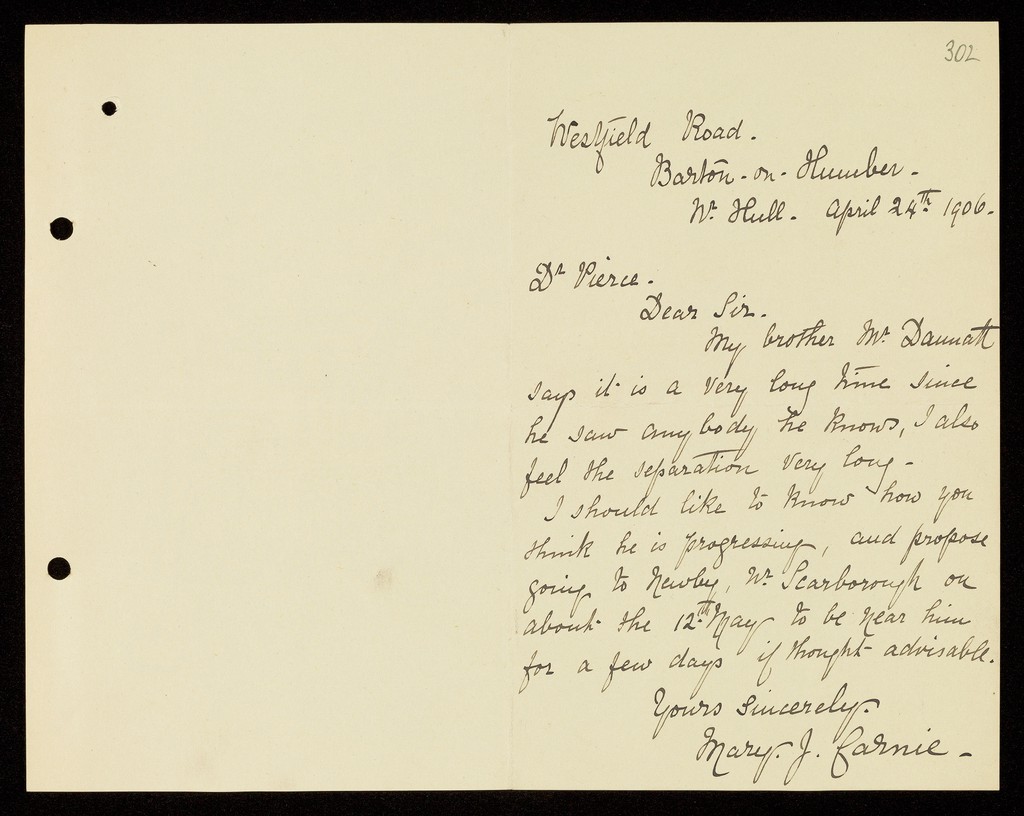 302
Westfield Road.
Barton-on-Humber.
Nr. Hull. April 24th 1906.
Dr Pierce.
Dear Sir.
My brother Mr. Dannatt
says it is a very long time since
he saw anybody he knows, I also
feel the separation very long-
I should like to know how you
think he is progressing, and propose
going to Newby, Nr. Scarborough on
about the 12th May to be near him
for a few days if thought advisable.
Yours sincerely.
Mary. J. Carnie-